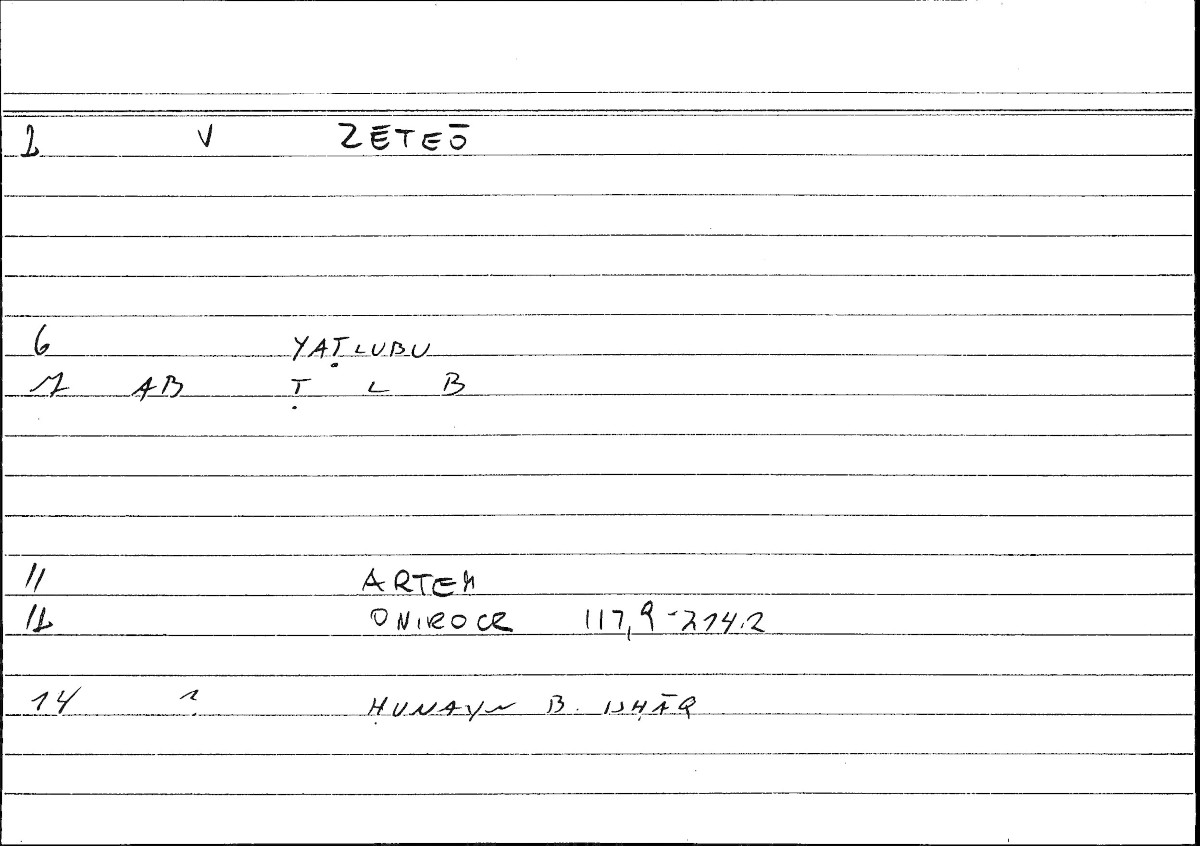 2 V ZĒTEŌ
6 YAṬLUBU
7 AB Ṭ L B
11 ARTEM
12 ONIROCR 117,9-214.2
14 ? ḤUNAYN B. ISḤĀQ